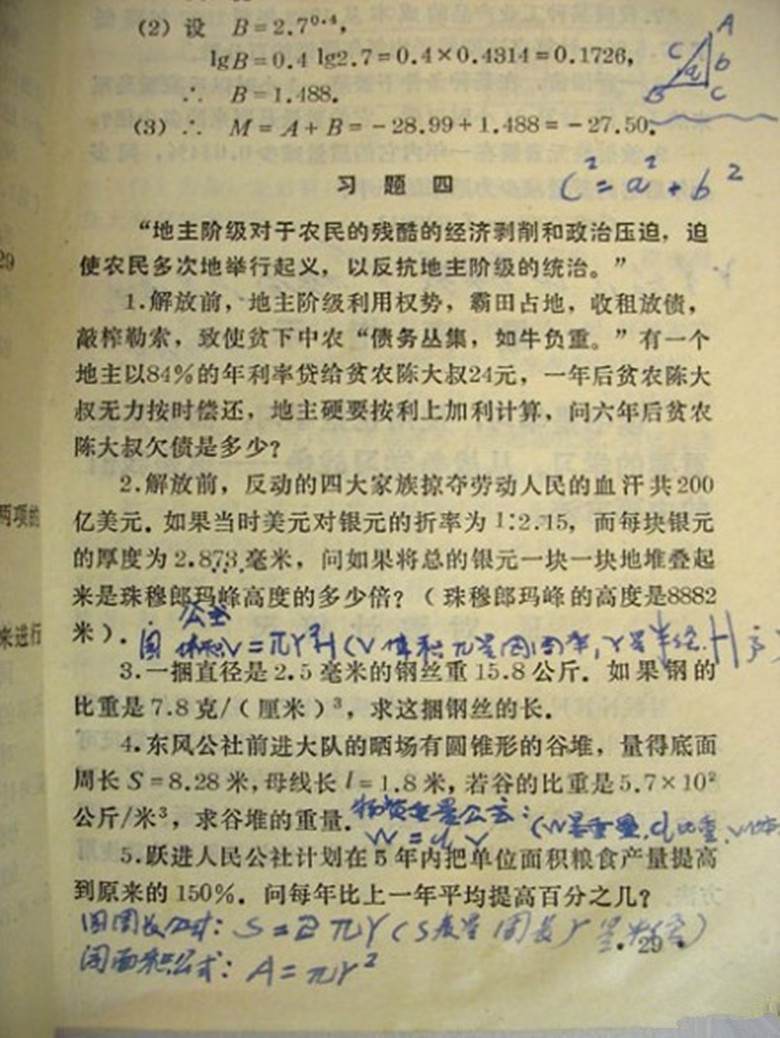 (2) 设 B=2.7⁰·⁴,
lgB=0.4 lg2.7=0.4×0.4314=0.1726,
∴ B=1.488.
(3) ∴ M=A+B=-28.99+1.488=-27.50.
A
C a b
B C
习题四
C²=a²+b²
“地主阶级对于农民的残酷的经济剥削和政治压迫，迫
29
使农民多次地举行起义，以反抗地主阶级的统治。”
1.解放前，地主阶级利用权势，霸田占地，收租放债，
敲榨勒索，致使贫下中农“债务丛集，如牛负重。”有一个
地主以84%的年利率贷给贫农陈大叔24元，一年后贫农陈大
叔无力按时偿还，地主硬要按利上加利计算，问六年后贫农
陈大叔欠债是多少？
2.解放前，反动的四大家族掠夺劳动人民的血汗共200
两项的
亿美元．如果当时美元对银元的折率为1:2.15，而每块银元
的厚度为2.873毫米，问如果将总的银元一块一块地堆叠起
来是珠穆郎玛峰高度的多少倍？（珠穆郎玛峰的高度是8882
来进行
米）．
公式
圆体积V=πr²H(V体积π是圆周率,r是半径.H高
3.一捆直径是2.5毫米的钢丝重15.8公斤．如果钢的
比重是7.8克/（厘米）³，求这捆钢丝的长．
4.东风公社前进大队的晒场有圆锥形的谷堆，量得底面
周长S=8.28米,母线长l=1.8米，若谷的比重是5.7×10²
公斤/米³，求谷堆的重量．
物资重量公式：(W是重量,d比重,V体
W=d V
5.跃进人民公社计划在5年内把单位面积粮食产量提高
到原来的150%．问每年比上一年平均提高百分之几？
方法
圆周长公式：S=2πr(S表是周长r是半径)
·29·
圆面积公式：A=πr²